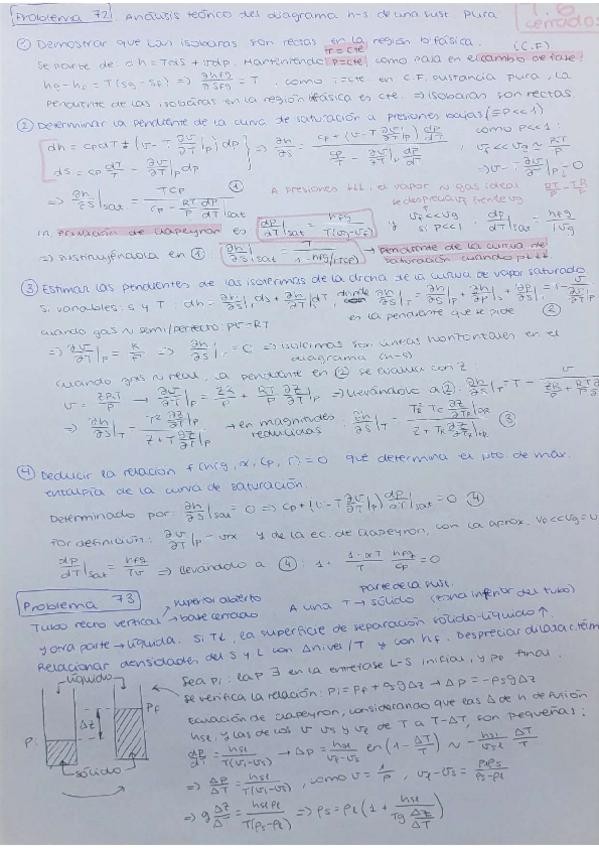 Problema 72 Análisis teórico del diagrama h-s de una sust. pura
T.6
cerrados
① Demostrar que las isobaras son rectas en la región bifásica.
T=cte (C.F)
Se parte de: dh = Tds + vdp. Manteniendo p=cte, como pasa en el cambio de fase:
hg - hf = T(sg - sf) ⇒ ∂hfg/∂sfg = T, como T=cte en C.F. sustancia pura, la
pendiente de las isobaras en la región bifásica es cte. ⇒ isobaras son rectas
② Determinar la pendiente de la curva de saturación a presiones bajas (≡P<<1)
dh = cpdT + (v - T ∂v/∂T|p) dp
ds = cp dT/T - ∂v/∂T|p dp
como p<<1:
⇒ ∂h/∂s|sat = Tcp / (cp - RT/p dp/dT|sat) ①
A presiones ↓↓↓, el vapor ~ gas ideal
se desprecia vf frente vg
La ecuación de Clapeyron es dp/dT|sat = hfg/T(vg-vf) y vf<<vg si p<<1, dp/dT|sat = hfg/Tvg
⇒ sustituyéndola en ①: ∂h/∂s|sat = T/(1 - hfg/(Tcp)) → Pendiente de la curva de
saturación cuando p↓↓↓
③ Estimar las pendientes de las isotermas de la derecha de la curva de vapor saturado
si variables: s y T: dh = ∂h/∂s|T ds + ∂h/∂T|s dT, donde
es la pendiente que se pide ②
cuando gas ~ semi/perfecto: pv=RT
⇒ ∂v/∂T|p = R/p ⇒ ∂h/∂s|T = 0 ⇒ isotermas son líneas horizontales en el
diagrama (h-s)
cuando gas ~ real, la pendiente en ② se evalúa con Z:
v = ZRT/p → ∂v/∂T|p = ZR/p + RT/p ∂Z/∂T|p ⇒ llevándolo a ②: ∂h/∂s|T = T - v/(ZR/p + RT/p ∂Z/∂T|p)
⇒ ∂h/∂s|T = T² ∂Z/∂T|p / (Z + T ∂Z/∂T|p) → en magnitudes reducidas: ③
④ Deducir la relación f(hfg, α, cp, T)=0 que determina el pto. de máx.
entalpía de la curva de saturación.
Determinado por: ∂h/∂s|sat = 0 ⇒ cp + (v - T ∂v/∂T|p) dp/dT|sat = 0 ④
Por definición: ∂v/∂T|p = vα y de la ec. de Clapeyron, con la aprox.
dp/dT|sat = hfg/Tv ⇒ llevando a ④: 1 + (1-αT)/T hfg/cp = 0
Problema 73
superior abierto
base cerrado
parte de la sust.
Tubo recto vertical A una T → sólido (zona inferior del tubo)
y otra parte → líquida. Si T↓, la superficie de separación sólido-líquido ↑
Relacionar densidades del S y L con Δnivel/T y con hf. Despreciar dilatac. térm
líquido
Sea pi: la P ∃ en la interfase L-S inicial, y pf final.
se verifica la relación: pi = pf + ρgΔz → Δp = -ρsgΔz
Ecuación de Clapeyron, considerando que las Δ de h de fusión
hsl, y las de los v vs y vl de T a T-ΔT, son pequeñas:
dp/dT = hsl/T(vl-vs) → Δp = hsl/(vl-vs) ln(1 - ΔT/T) ~ - hsl/(vl-vs) ΔT/T
⇒ Δp/ΔT = hsl/T(vl-vs), como v = 1/ρ
pi
Δz
pf
sólido
⇒ ρs = ρl (1 + hsl/(Tg Δz/ΔT))